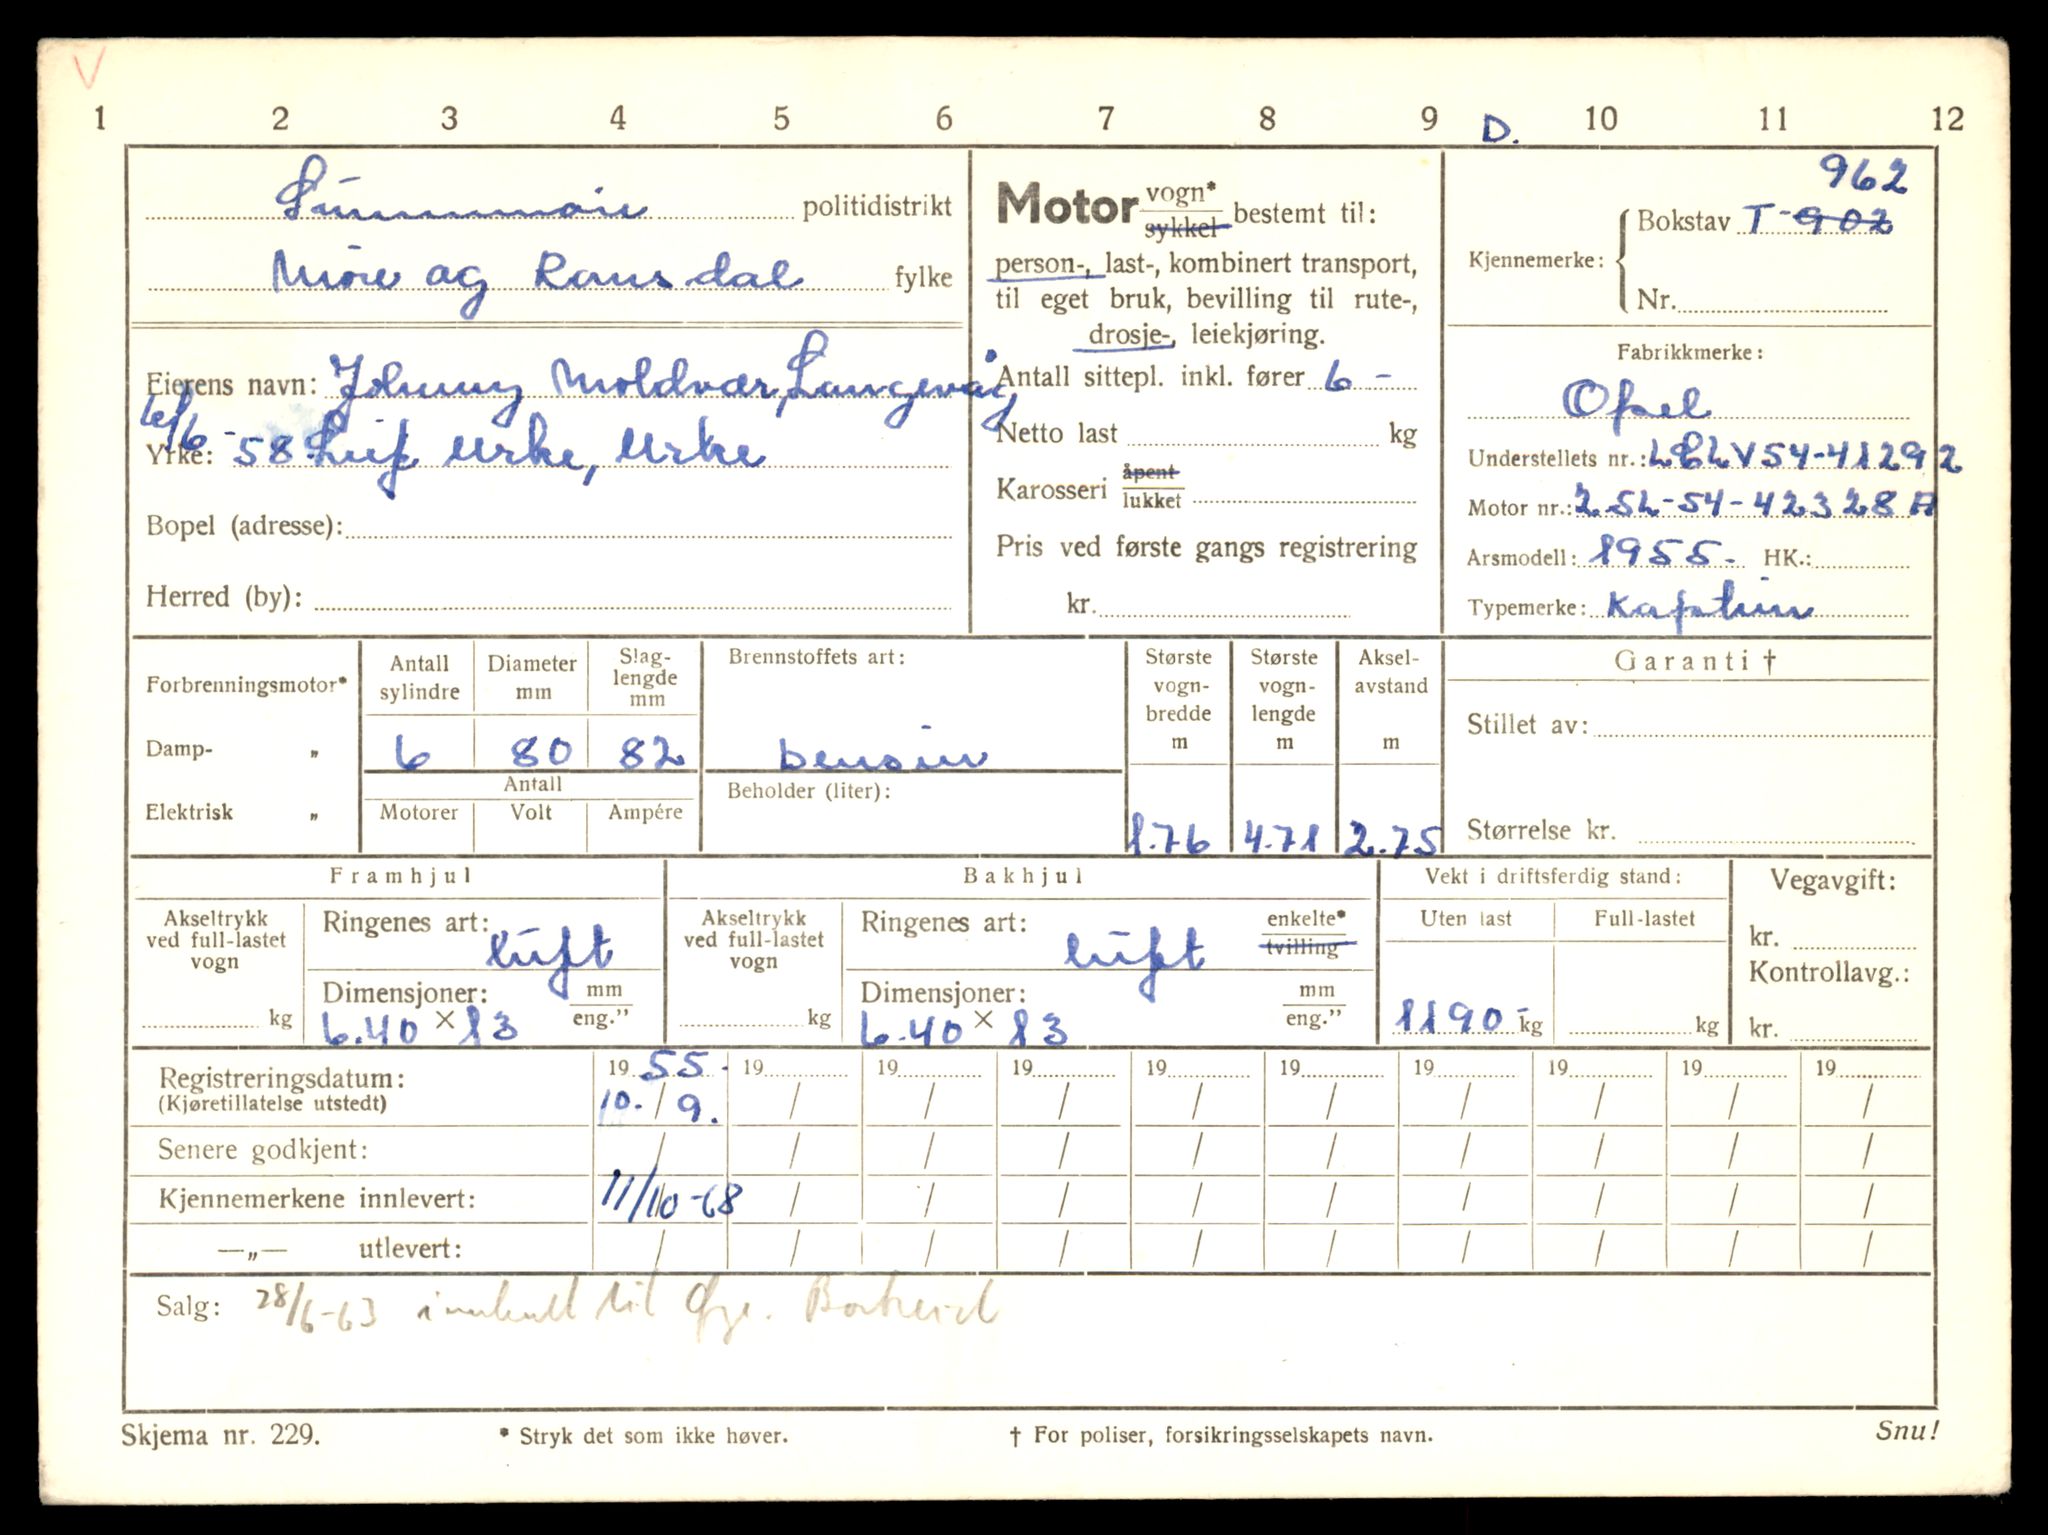 V
1 2 3 4 5 6 7 8 9 D. 10 11 12
Sunnmøre politidistrikt
Møre og Romsdal fylke
Eierens navn: Johnny Moldvær, Langevåg
6/6-58 Leif Urke, Urke
Yrke:
Bopel (adresse):
Herred (by):
Motor vogn* sykkel bestemt til:
person-, last-, kombinert transport,
til eget bruk, bevilling til rute-,
drosje-, leiekjøring.
Antall sittepl. inkl. fører 6 -
Netto last kg
Karosseri åpent lukket
Pris ved første gangs registrering
kr.
962
Kjennemerke: Bokstav T-902
Nr.
Fabrikkmerke:
Opel
Understellets nr.: LV54-41292
Motor nr.: 2.5L-54-42328 A
Arsmodell: 1955- HK.:
Typemerke: Kaptein
Forbrenningsmotor*
Damp- „
Elektrisk „
Antall sylindre Diameter mm Slag-lengde mm
6 80 82
Antall
Motorer Volt Ampére
Brennstoffets art:
bensin
Beholder (liter):
Største vogn-bredde m
1.76
Største vogn-lengde m
4.71
Aksel-avstand m
2.75
Garanti †
Stillet av:
Størrelse kr.
Framhjul
Akseltrykk ved full-lastet vogn
kg
Ringenes art: luft
Dimensjoner: mm eng."
6.40 × 13
Bakhjul
Akseltrykk ved full-lastet vogn
kg
Ringenes art: luft enkelte* tvilling
Dimensjoner: mm eng."
6.40 × 13
Vekt i driftsferdig stand:
Uten last Full-lastet
1190- kg kg
Vegavgift:
kr.
Kontrollavg.:
kr.
Registreringsdatum: 19 55- 19 19 19 19 19 19 19 19 19
(Kjøretillatelse utstedt) 10. / 9. / / / / / / / / /
Senere godkjent: / / / / / / / / / /
Kjennemerkene innlevert: 11/10-68 / / / / / / / / /
—„— utlevert: / / / / / / / / / /
Salg: 28/6-63 innkalt til Borkeid
Skjema nr. 229. * Stryk det som ikke høver. † For poliser, forsikringsselskapets navn. Snu!